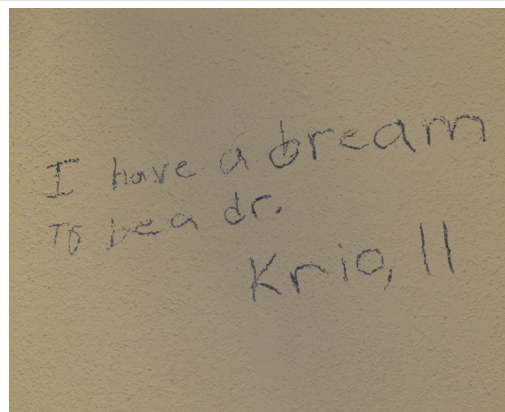 I have a dream
To be a dr.
Krio, 11